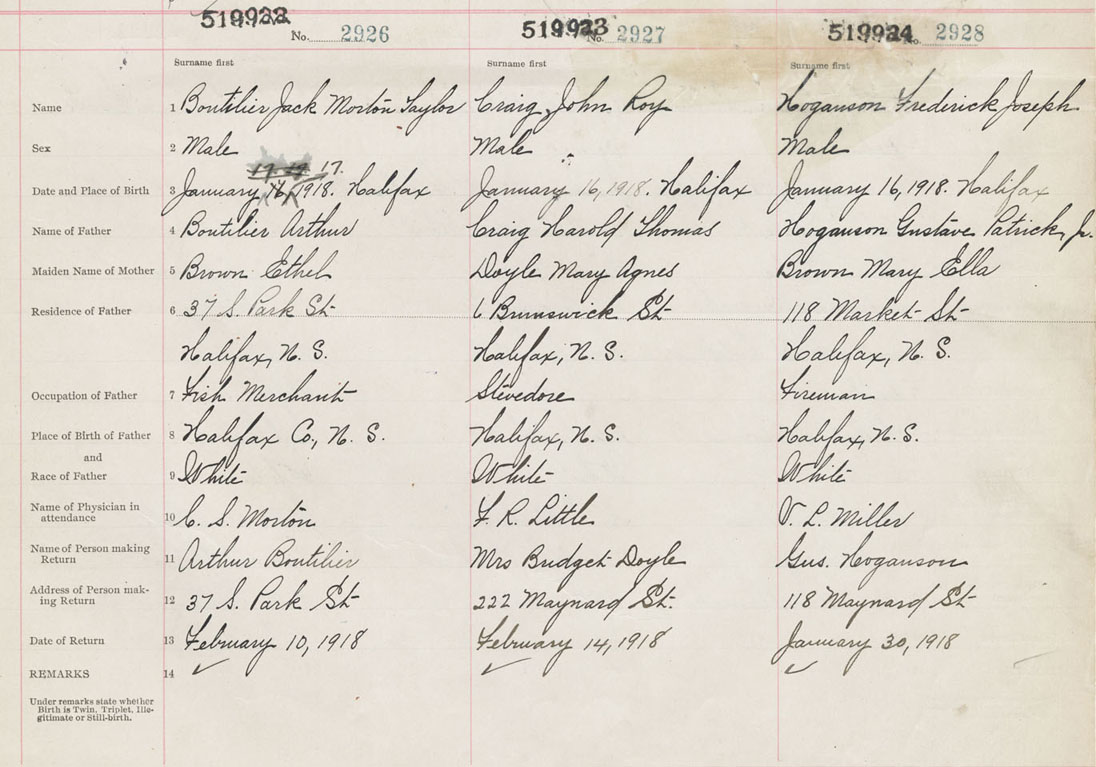 519922 519923 519924
No. 2926 No. 2927 No. 2928
Surname first Surname first Surname first
Name 1 Boutilier Jack Morton Taylor Craig, John Roy Hoganson Frederick Joseph
Sex 2 Male Male Male
17.
Date and Place of Birth 3 January 16, 1918. Halifax January 16, 1918. Halifax January 16, 1918. Halifax
Name of Father 4 Boutilier Arthur Craig Harold Thomas Hoganson Gustave Patrick, Jr.
Maiden Name of Mother 5 Brown Ethel Doyle Mary Agnes Brown Mary Ella
Residence of Father 6 37 S. Park St 6 Brunswick St 118 Market St
Halifax, N. S. Halifax, N. S. Halifax, N. S.
Occupation of Father 7 Fish Merchant Stevedore Fireman
Place of Birth of Father 8 Halifax Co., N. S. Halifax, N. S. Halifax, N. S.
and
Race of Father 9 White White White
Name of Physician in
attendance 10 C. S. Morton F. R. Little V. L. Miller
Name of Person making
Return 11 Arthur Boutilier Mrs Bridget Doyle Gus. Hoganson
Address of Person mak-
ing Return 12 37 S. Park St 222 Maynard St. 118 Maynard St
Date of Return 13 February 10, 1918 February 14, 1918 January 30, 1918
REMARKS 14
Under remarks state whether
Birth is Twin, Triplet, Ille-
gitimate or Still-birth.